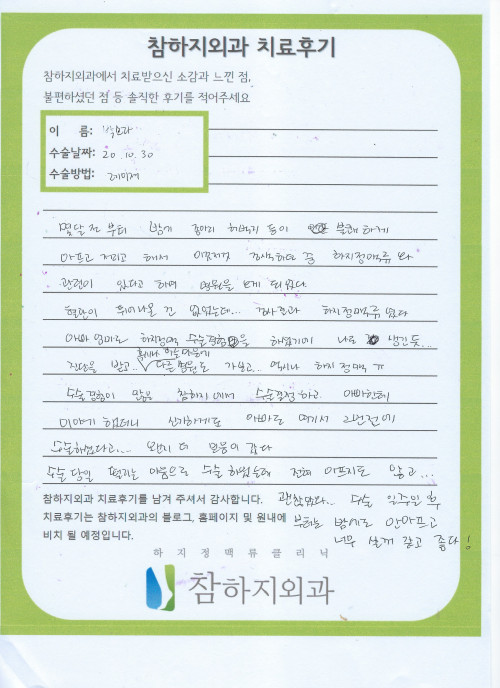 참하지외과 치료후기
참하지외과에서 치료받으신 소감과 느낀 점,
불편하셨던 점 등 솔직한 후기를 적어주세요
이 름:
수술날짜: 20. 10. 30
수술방법: 레이저
몇달 전 부터 밤에 종아리 허벅지 등이 불쾌하게
아프고 저리고 해서 이곳저곳 검색하던 중 하지정맥류와
관련이 있다고 하여 병원을 보게 되었다
혈관이 튀어나온 건 없었는데... 검사결과 하지정맥류였다
아빠 엄마도 하지정맥 수술경험을 하셨기에 나도 생긴듯...
진단을 받고.. 혹시나 하는 마음에 다른 병원도 가보고.. 역시나 하지정맥ㅠ
수술경험이 많은 참하지에서 수술결정하고 아빠한테
이야기 했더니 신기하게도 아빠도 여기서 2번전에
수술하셨다고... 왠지 더 믿음이 갔다
수술 당일 떨리는 마음으로 수술 하였는데 전혀 아프지도 않고...
참하지외과 치료후기를 남겨 주셔서 감사합니다. 괜찮았다.. 수술 일주일 후
치료후기는 참하지외과의 블로그, 홈페이지 및 원내에 부터는 밤에도 안아프고
비치 될 예정입니다. 너무 살꺼 같고 좋다!
하지정맥류클리닉
참하지외과